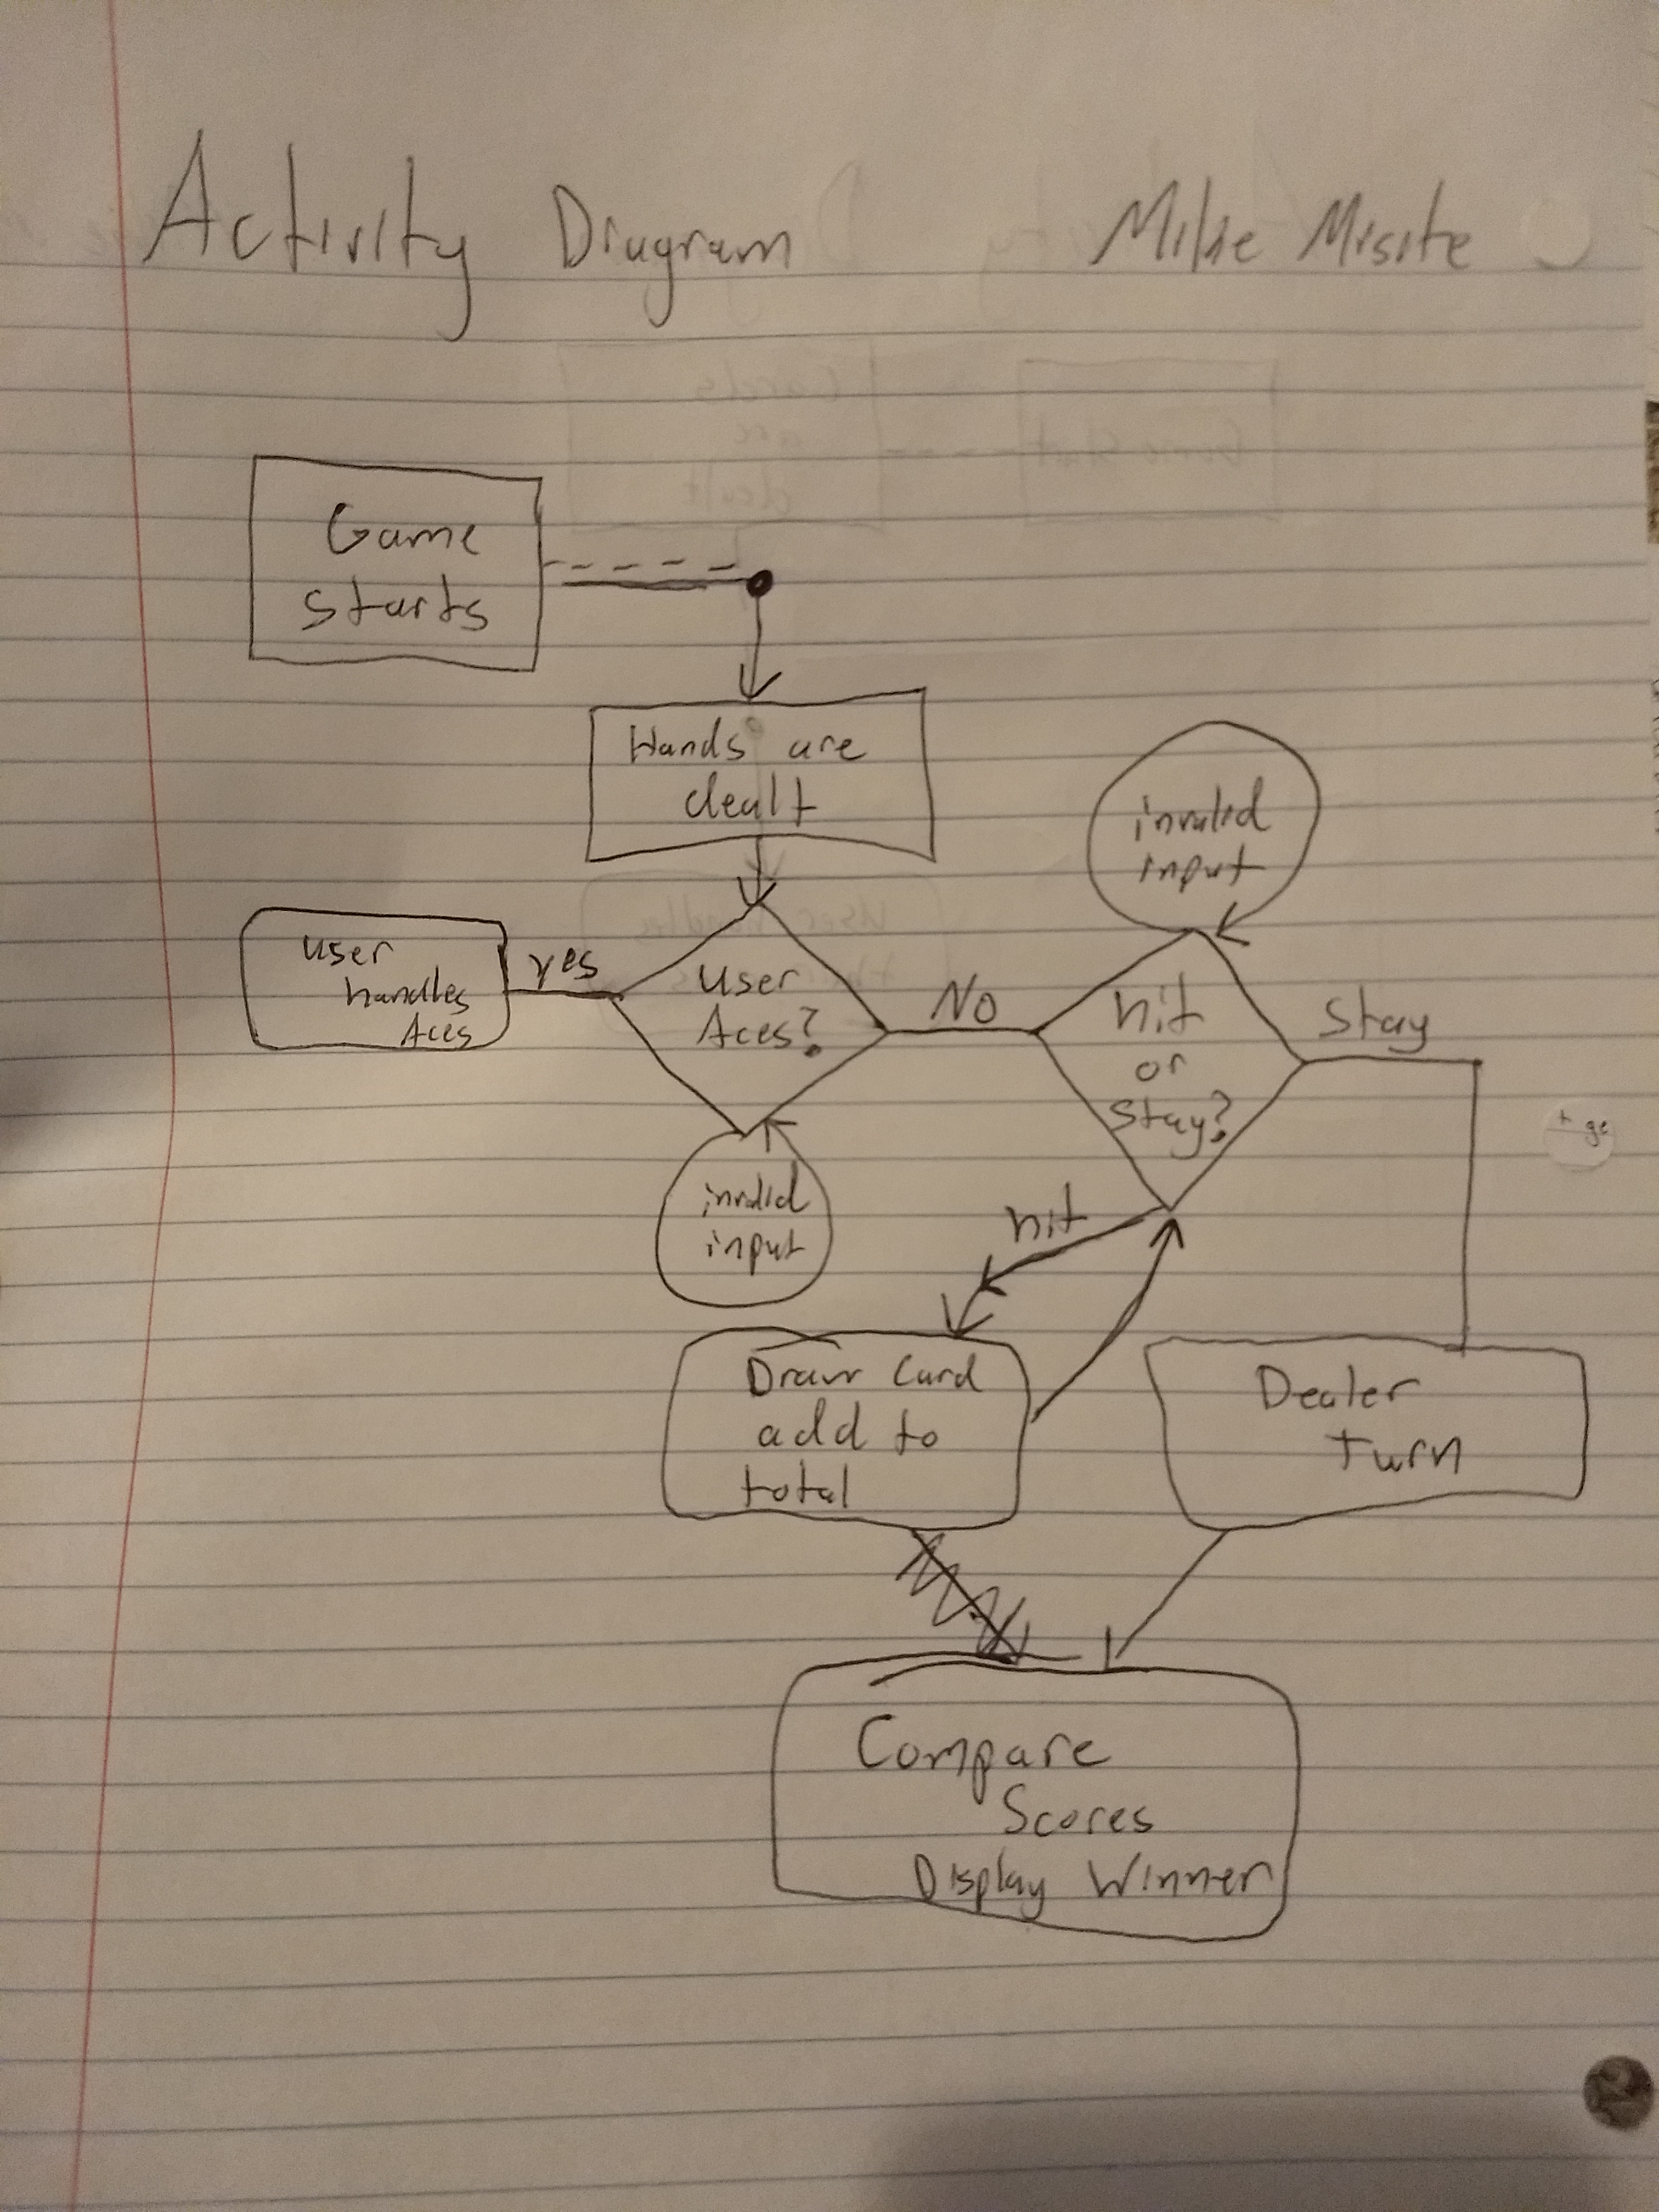 Activity Diagram Mike Misite
Game
starts
Hands are
dealt
invalid
input
user
handles
Aces
yes
User
Aces?
No
hit
or
stay?
Stay
invalid
input
hit
Draw Card
add to
total
Dealer
turn
Compare
Scores
Display Winner